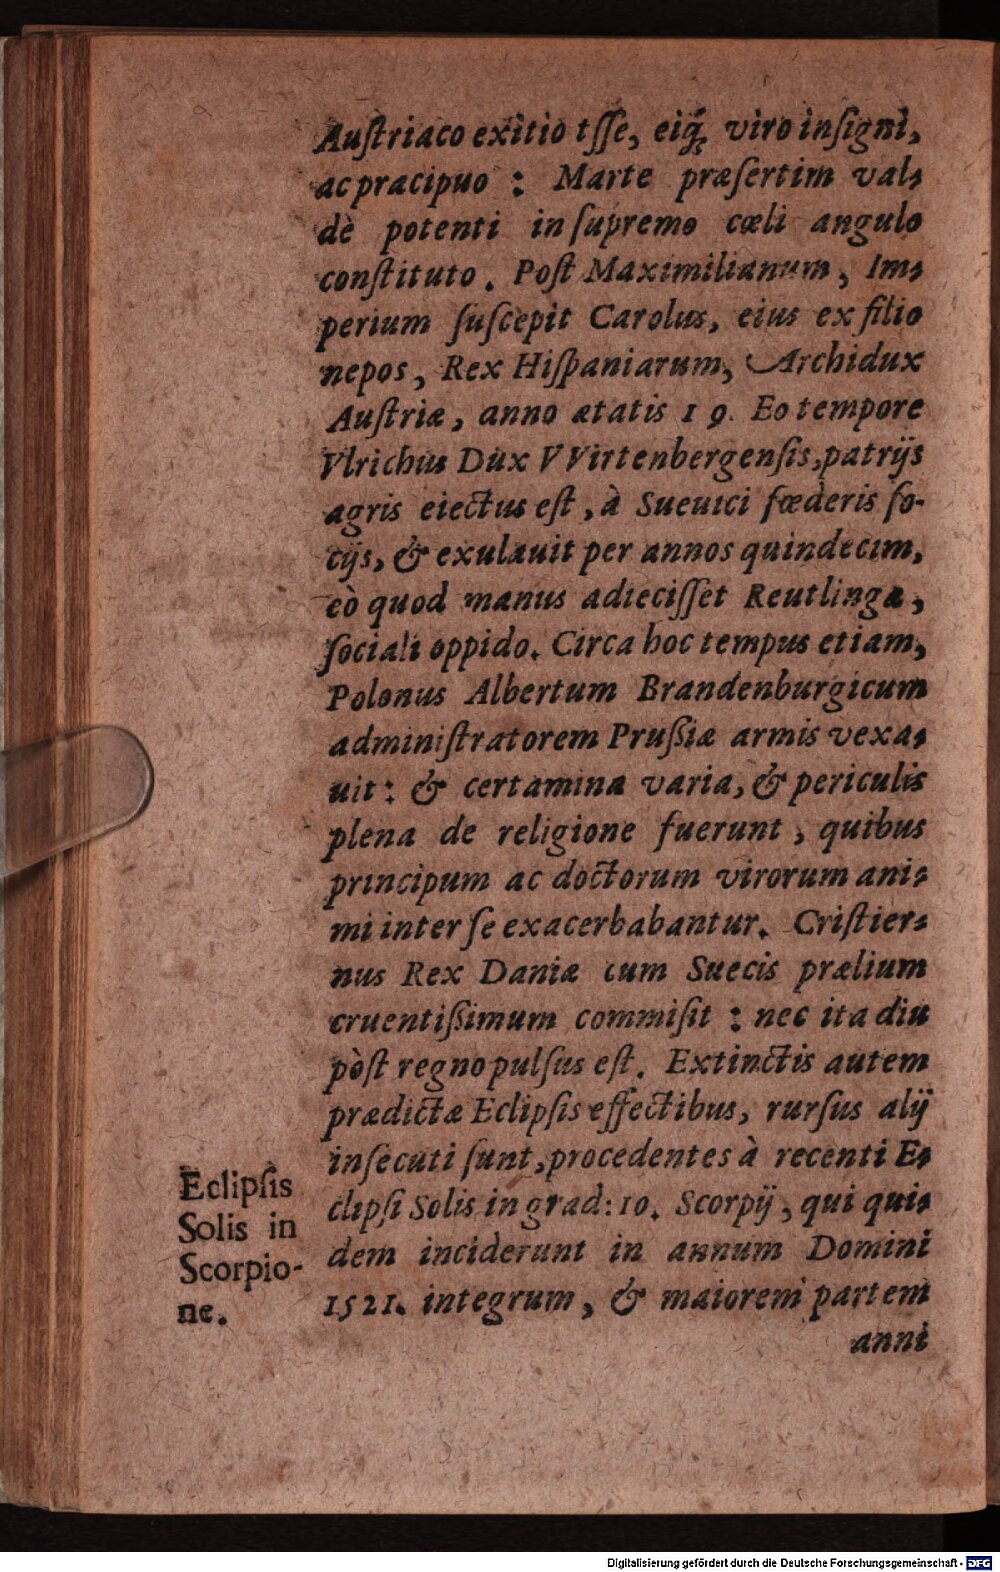 Auſtriaco exitio tſſe, eiq́; viro inſigni,
ac pracipuo : Marte præſertim val⸗
dè potenti in ſupremo cœli angulo
conſtituto. Poſt Maximilianum, Im⸗
perium ſuſcepit Carolus, eius ex filio
nepos, Rex Hiſpaniarum, Archidux
Auſtriæ, anno ætatis 19. Eo tempore
Vlrichus Dux VVirtenbergenſis, patrijs
agris eiectus eſt, à Sueuici fœderis ſo-
cijs, & exulauit per annos quindecim,
eò quod manus adieciſſet Reutlingæ,
ſociali oppido. Circa hoc tempus etiam,
Polonus Albertum Brandenburgicum
adminiſtratorem Pruſſiæ armis vexa⸗
uit: & certamina varia, & periculis
plena de religione fuerunt, quibus
principum ac doctorum virorum ani⸗
mi inter ſe exacerbabantur. Criſtier⸗
nus Rex Daniæ cum Suecis prælium
cruentiſſimum commiſit : nec ita diu
pòſt regno pulſus eſt. Extinctis autem
prædictæ Eclipſis effectibus, rurſus alij
inſecuti ſunt, procedentes à recenti E⸗
clipſi Solis in grad: 10. Scorpij, qui qui⸗
dem inciderunt in annum Domini
1521. integrum, & maiorem partem
anni
Eclipſis
Solis in
Scorpio-
ne.
Digitalisierung gefördert durch die Deutsche Forschungsgemeinschaft - DFG